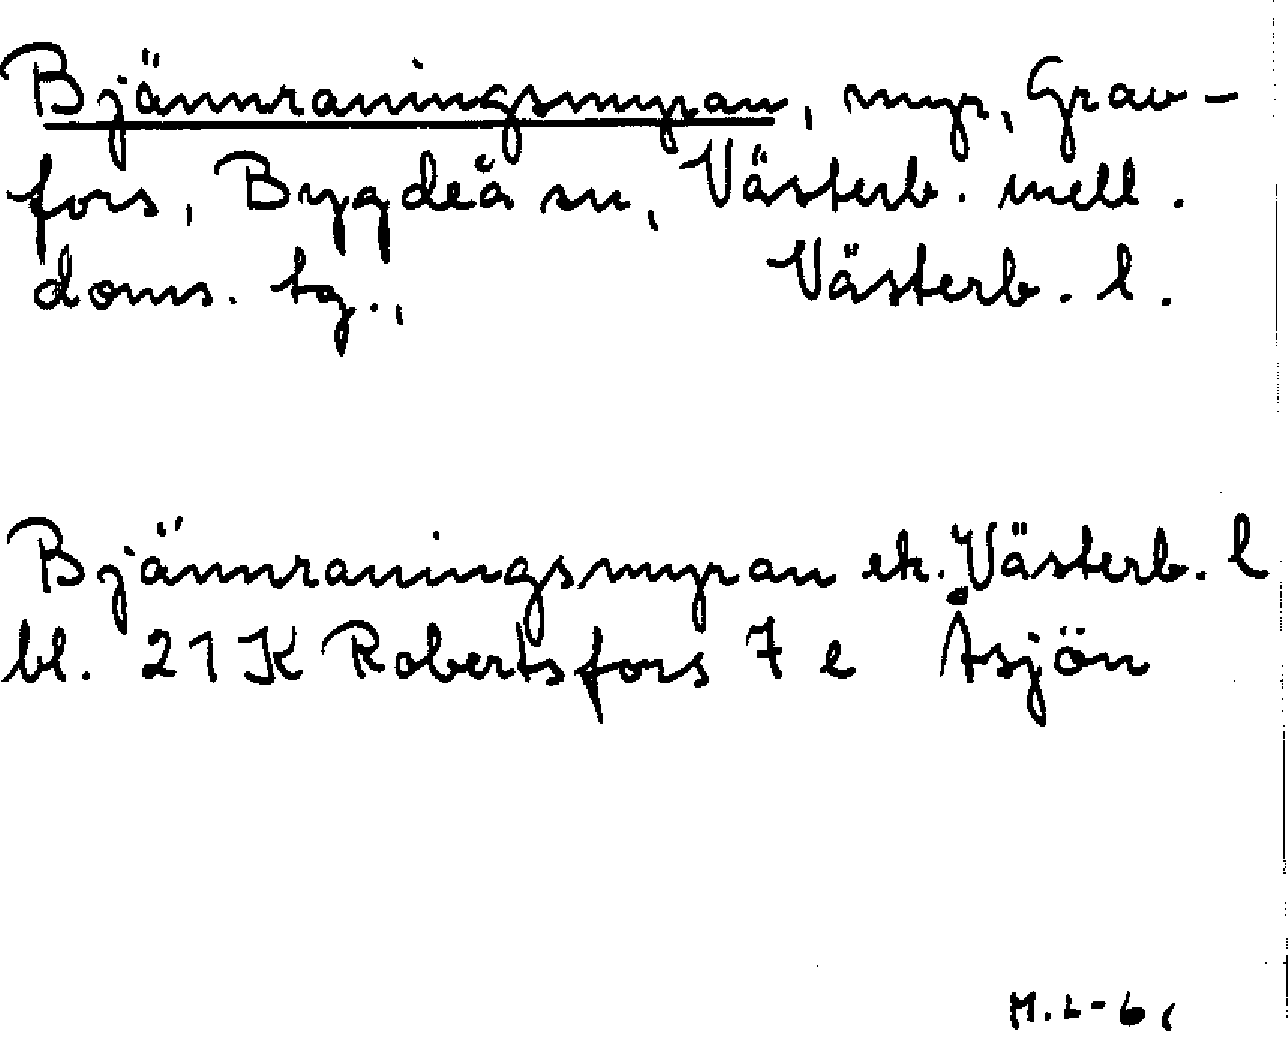 Bjännraningsmyran, myr, Grav-
fors, Bygdeå sn, Västerb. mell.
doms. tg., Västerb. l.
Bjännraningsmyran ek. Västerb. l
bl. 21 K Robertsfors 7 e Åsjön
M.L-6